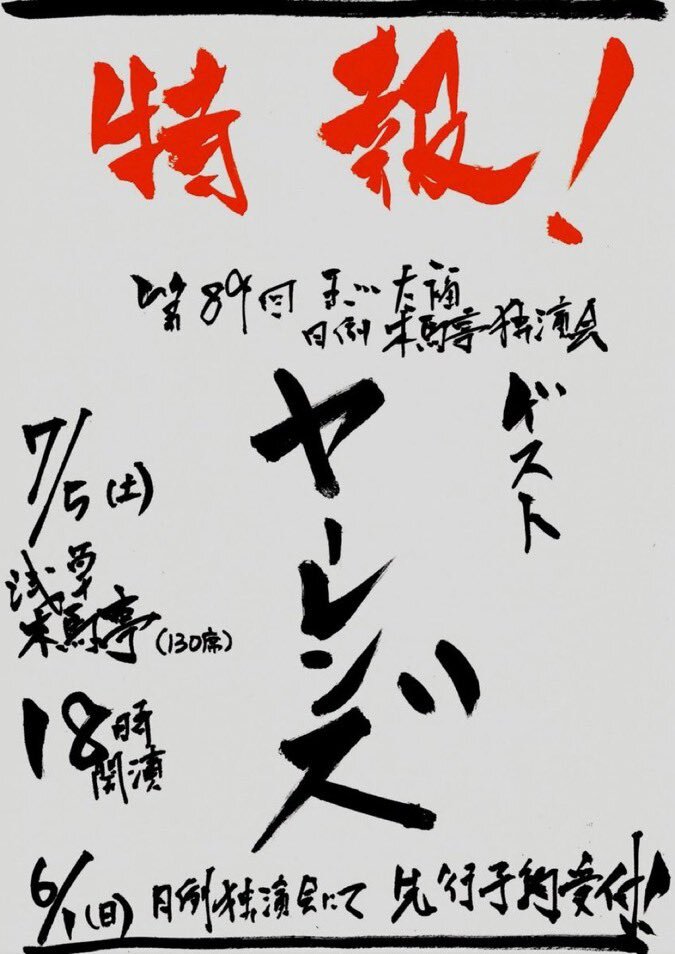 特報!
第89回 玉川太福
月例 木馬亭独演会
ゲスト
ヤーレンズ
7/5(土)
浅草
木馬亭(130席)
18時
開演
6/1(日) 月例独演会にて 先行予約受付!